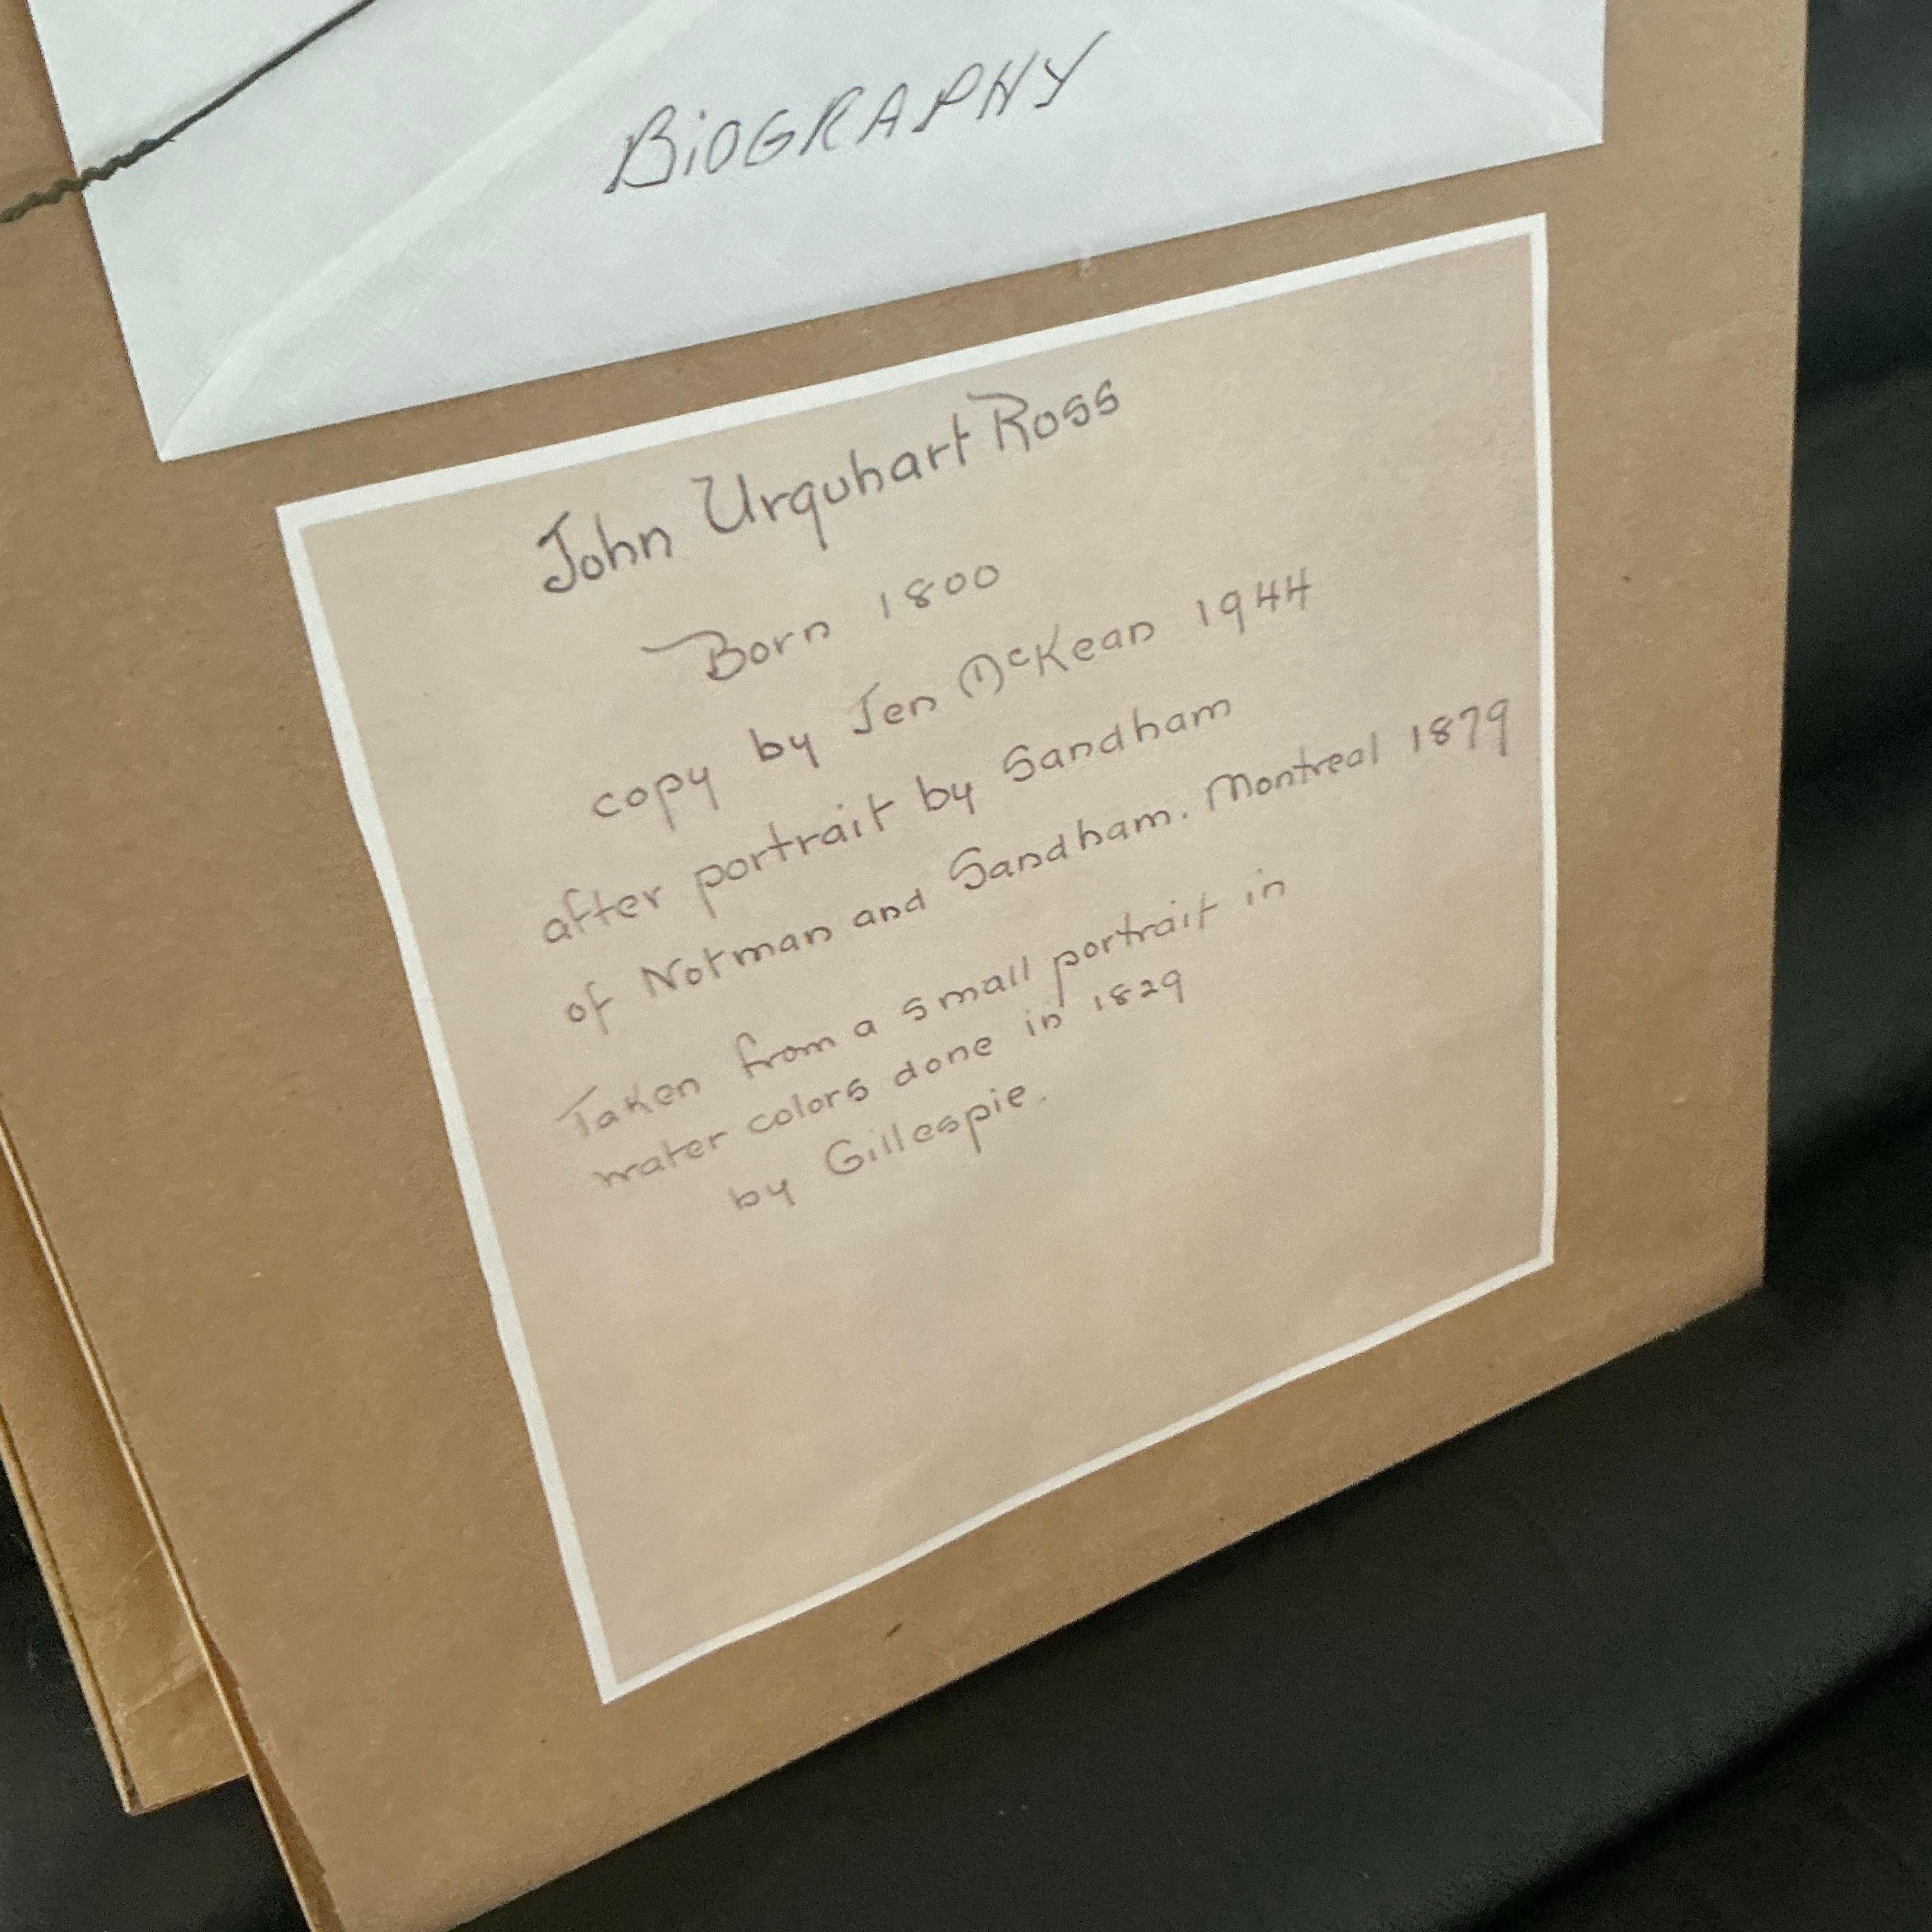 BiOGRAPHY
John Urquhart Ross
Born 1800
copy by Jen McKean 1944
after portrait by Sandham
of Notman and Sandham. Montreal 1879
Taken from a small portrait in
water colors done in 1829
by Gillespie.